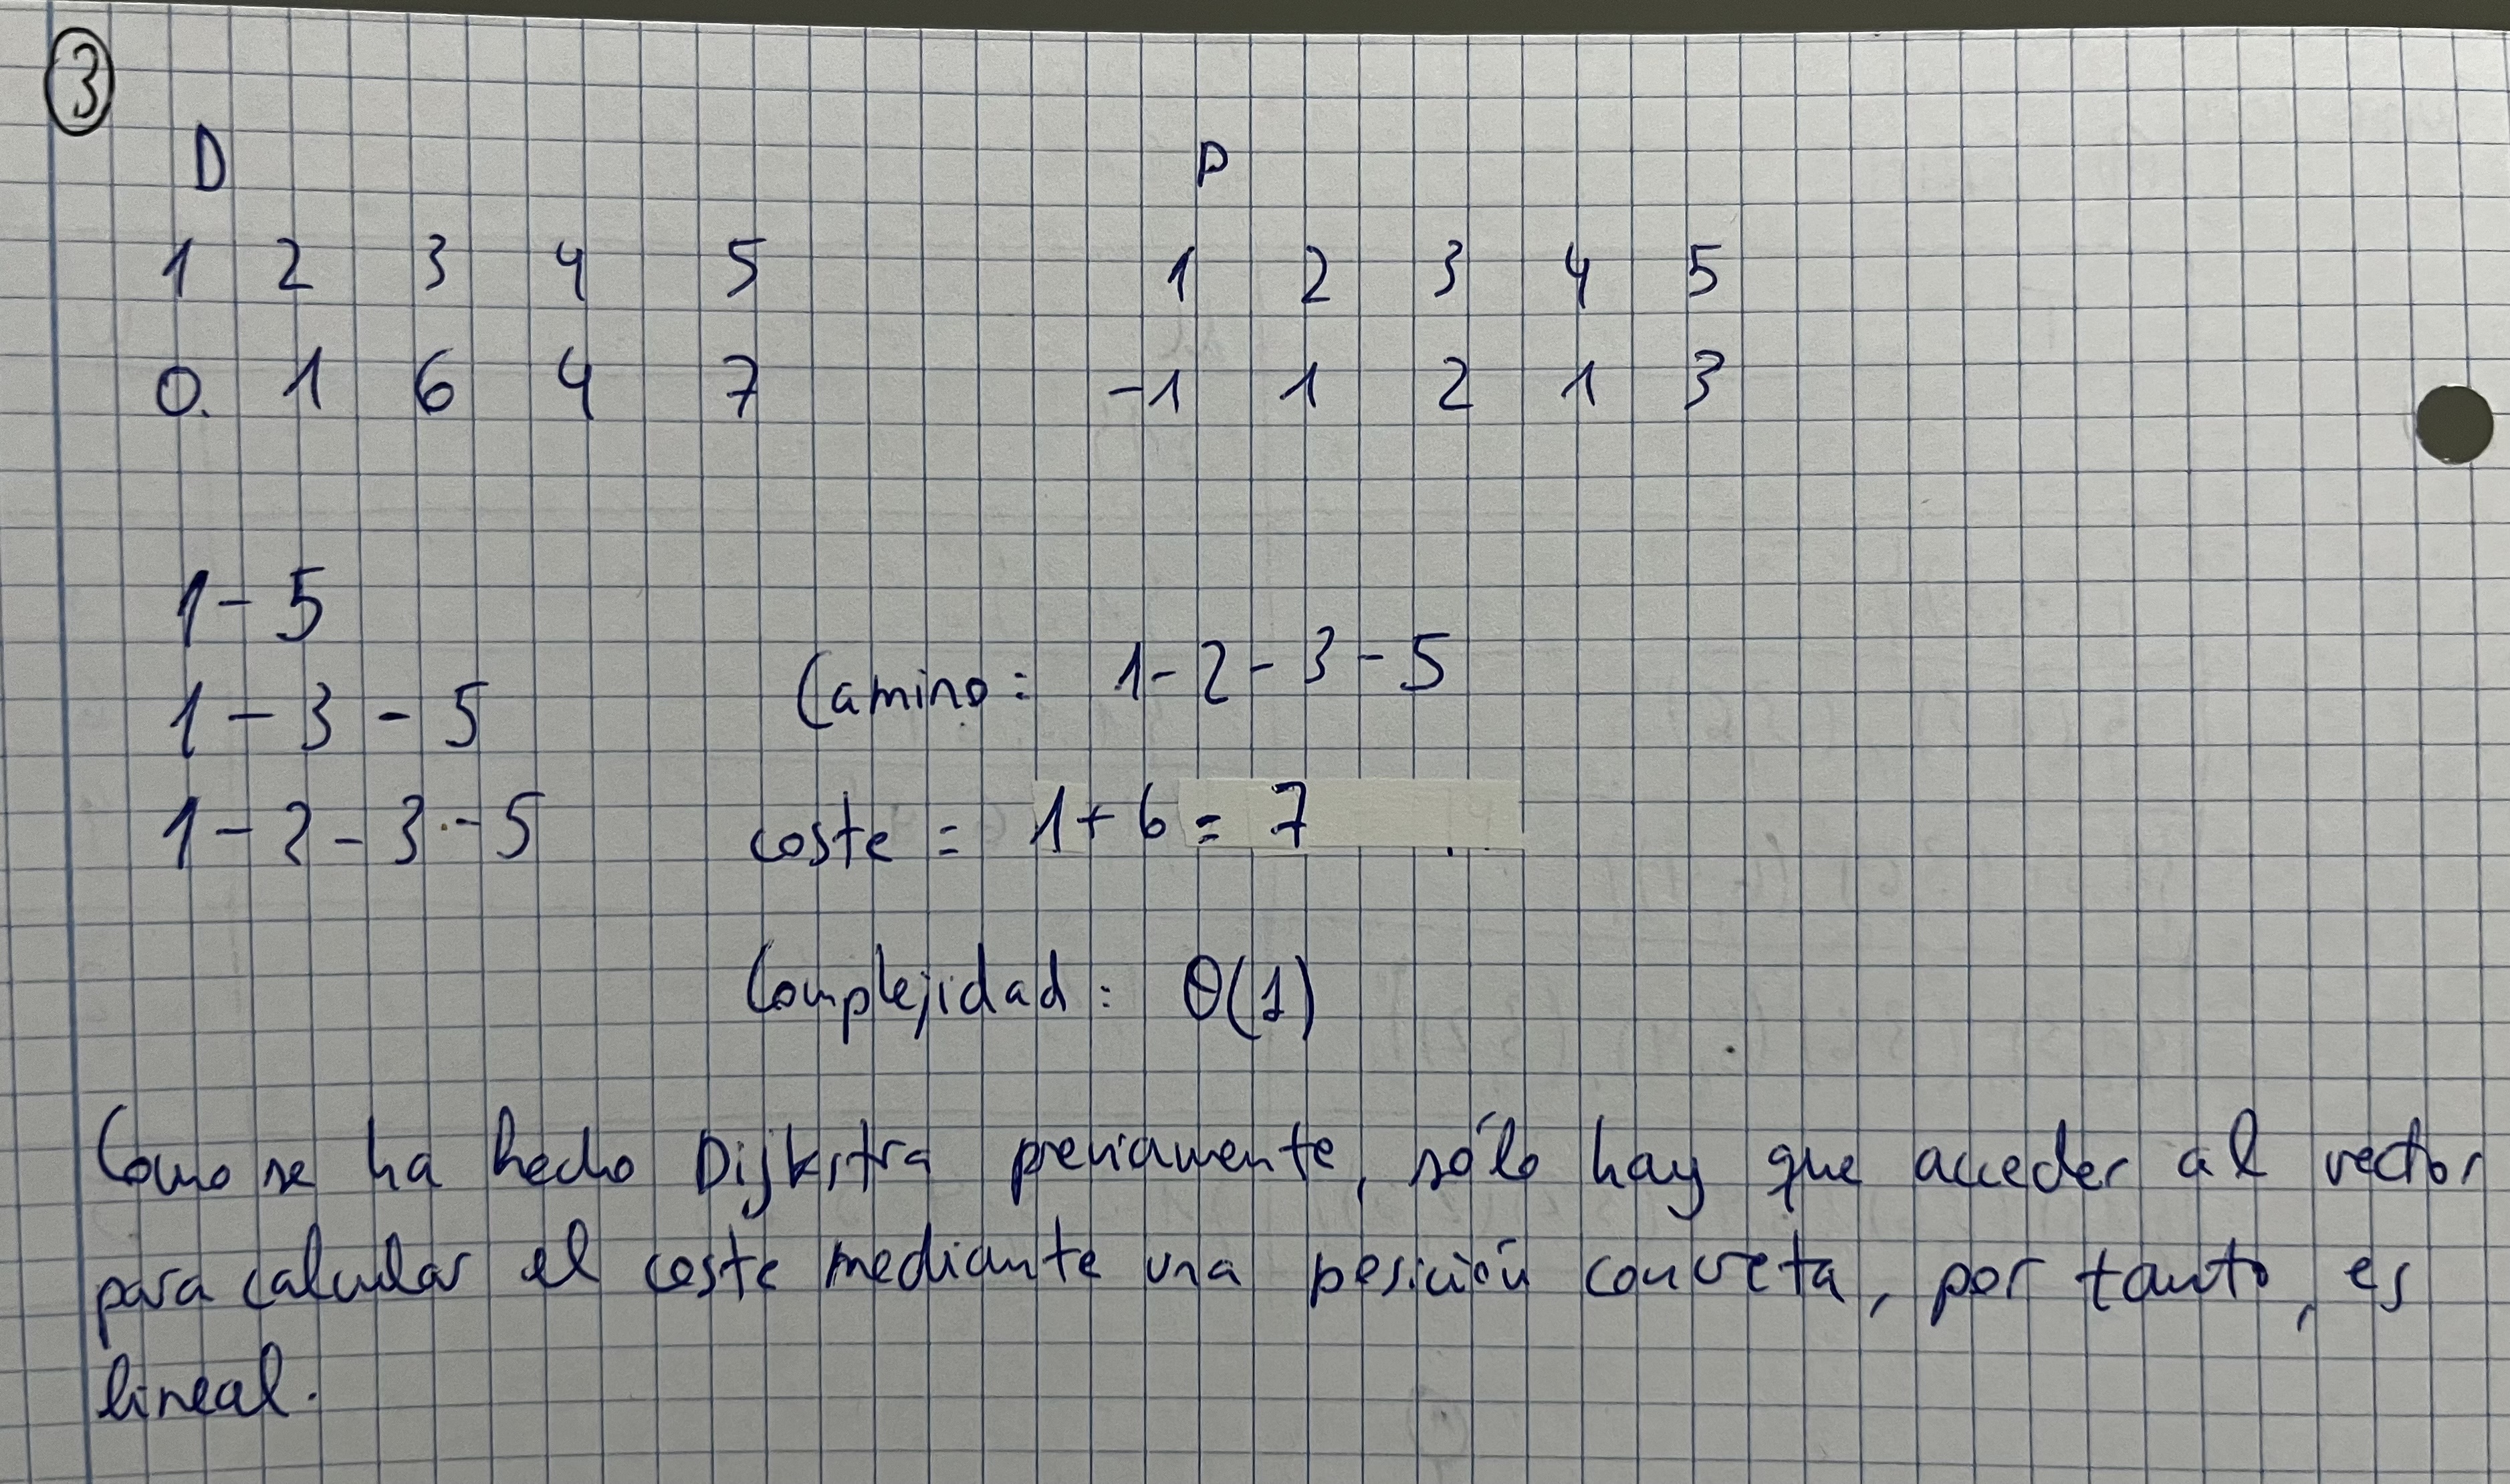 3
D
P
1 2 3 4 5
1 2 3 4 5
0. 1 6 4 7
-1 1 2 1 3
1-5
1-3-5
Camino: 1-2-3-5
1-2-3-5
coste = 1+6=7
Complejidad: Θ(1)
Como se ha hecho Dijkstra previamente, sólo hay que acceder al vector
para calcular el coste mediante una posición concreta, por tanto, es
lineal.